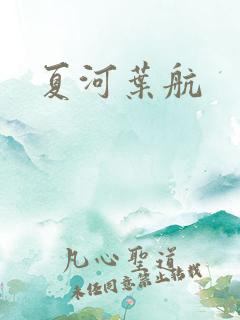 夏河葉航
凡心聖道
未经同意禁止转载